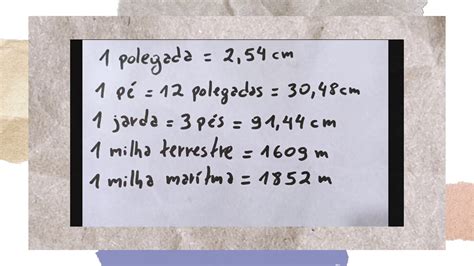 1 polegada = 2,54 cm
1 pé = 12 polegadas = 30,48cm
1 jarda = 3 pés = 91,44 cm
1 milha terrestre = 1609 m
1 milha marítma = 1852 m